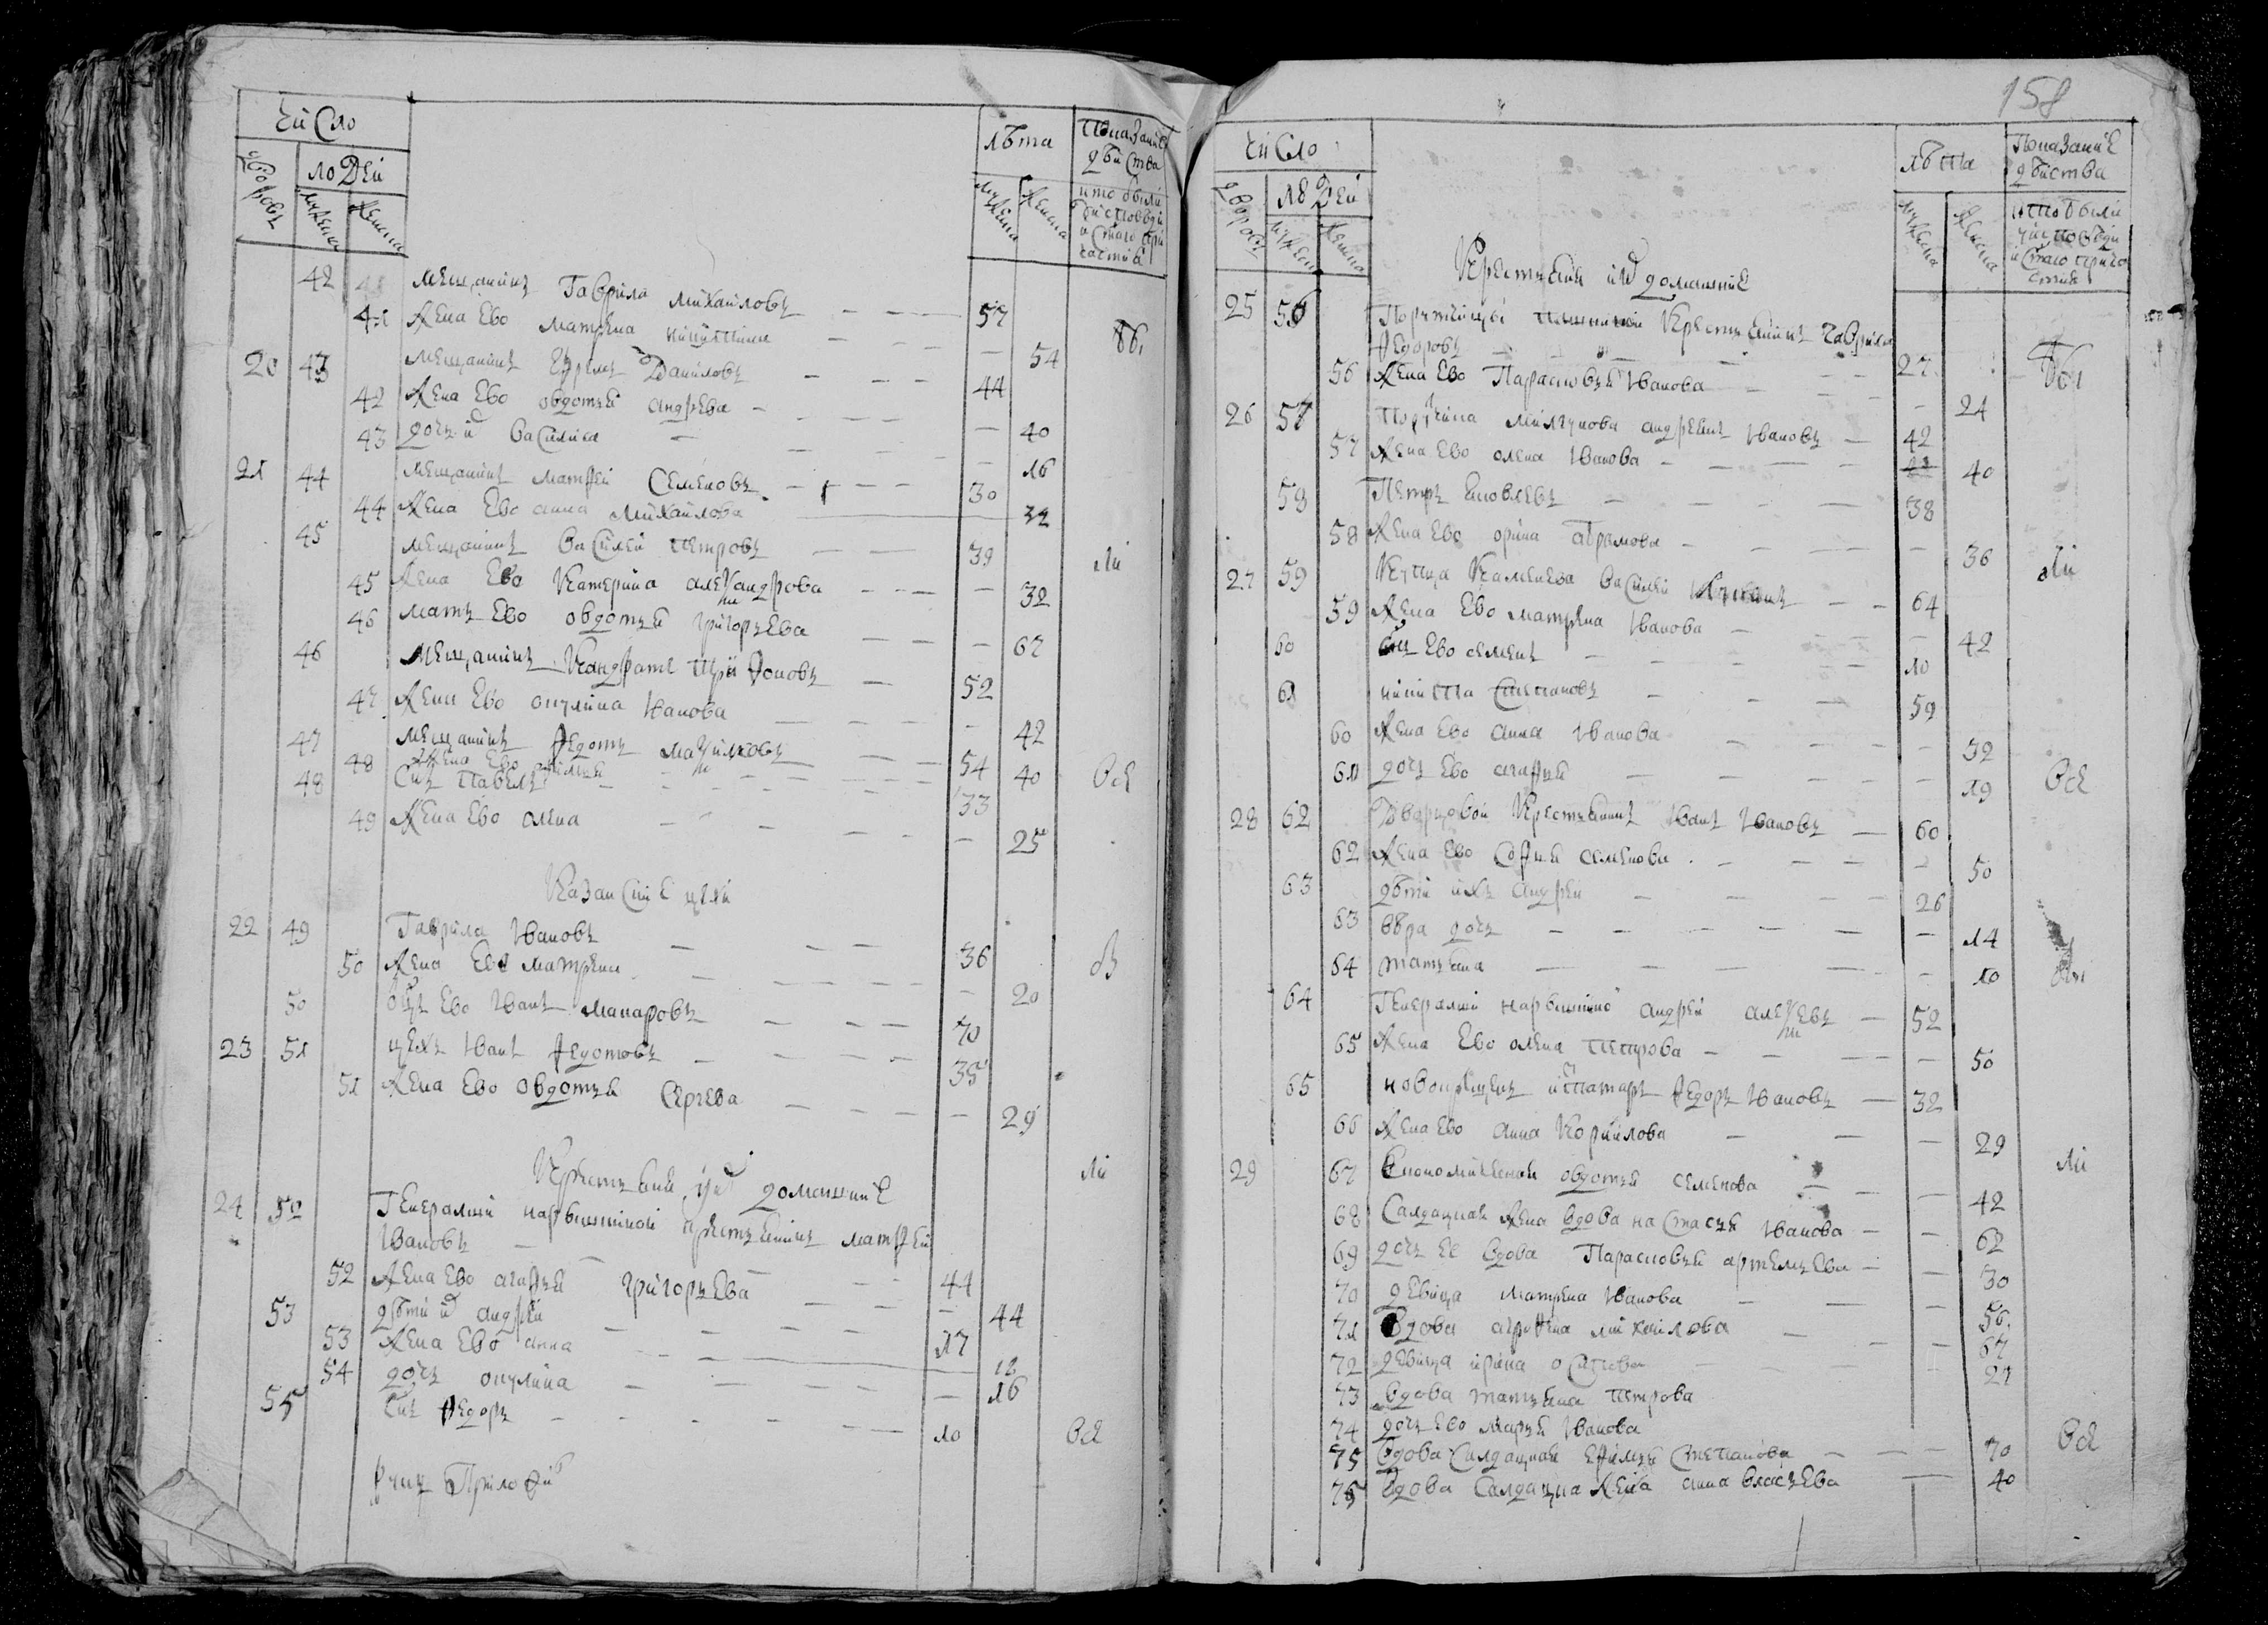 Число
лѣта
Показание
дѣйства
дворовъ
людей
мужеска
женска
мужеска
женска
кто были
у исповеди
и Стаго при
частия
42 мещанинъ Гаврила михайловъ 57
41 жена Ево матрена никитина 54
Бы
20 43 мещанинъ Даниловъ 44
42 жена Ево овдотья андрева 40
43 дочь и василиса 16
21 44 мещанинъ матфей Семеновъ 30
44 жена Ево анна михайлова 32
45 мещанинъ василей петровъ 39
ли
45 жена Ево Катерина александрова 32
46 мать Ево овдотья григорьева 67
46 мещанинъ Кандратъ трифоновъ 52
47 жена Ево окулина Иванова 42
47 мещанинъ федотъ 54
48 жена Ево 40
Всѣ
48 Снъ павелъ 33
49 жена Ево олена 25
22 49 Гаврила Ивановъ 36
50 жена Ево матрена 20
50 оцъ Ево Иванъ макаровъ 70
23 51 цехъ Иванъ федотовъ 35
51 жена Ево овдотья Сергева 29
Крестьяня и домашние
ли
24 52 Генералши нарышкиной крестьянинъ матфей
Ивановъ
52 жена Ево агафья григорьева 44
44
53 дѣти и андрей 17
53 жена Ево анна 18
54 дочь окулина 16
55 Снъ федоръ 10
Всѣ
158
Число
лѣта
Показание
дѣйства
дворовъ
людей
мужеска
женска
мужеска
женска
кто были
у исповеди
и Стаго прича
стия
Крестьяня и домашние
25 56 крестьянинъ гаврила
федоровъ 27
Бы
56 жена Ево Парасковья Иванова 24
26 57 андреянъ Ивановъ 42
57 жена Ево олена Иванова 40
58 Петръ яковлевъ 38
58 жена Ево орина абрамова 36
ли
27 59 Купца Каменева василей 64
59 жена Ево матрена Иванова 42
60 снъ Ево семенъ 10
61 никита Степановъ 59
60 жена Ево анна Иванова 52
61 дочь Ево агафья 19
Всѣ
28 62 Дварцовой Крестьянинъ Иванъ Ивановъ 60
62 жена Ево Софья семенова 50
63 дѣти ихъ андрей 26
63 вѣра дочь 14
64 татьяна 10
64 Генералши нарышкиной андрей алексевъ 52
65 жена Ево олена петрова 50
65 новокрещенъ изтатаръ федоръ Ивановъ 32
66 жена Ево анна Корнилова 29
ли
29 67 Економическая овдотья семенова 42
68 Салдацкая жена вдова настасья Иванова 62
69 дочь Ее вдова Парасковья артемьева 30
70 девица матрена Иванова 56
71 вдова агрофена михайлова 67
72 девица ирина осипова 21
73 вдова татьяна петрова
74 дочь Ево марья Иванова
75 вдова Салдацкая ефимья Степанова 70
Всѣ
76 вдова Салдацка жена анна власьева 40